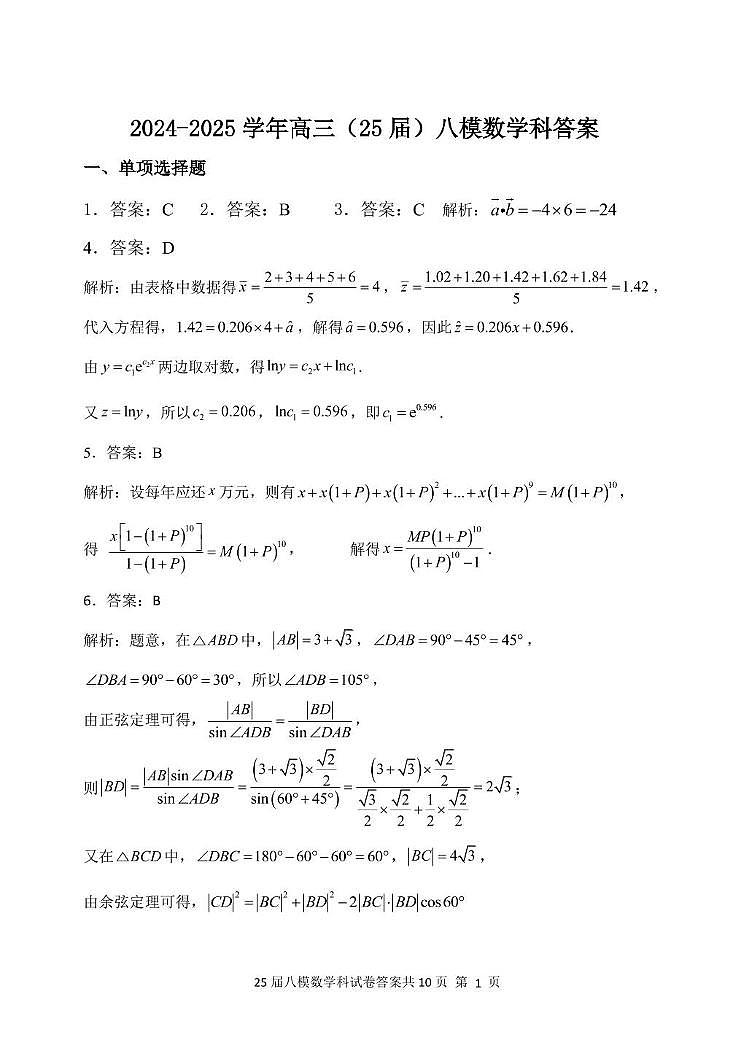 2024-2025 学年高三（25 届）八模数学科答案
一、单项选择题
1．答案：C 2．答案：B 3．答案：C 解析：$\vec{a}•\vec{b}=-4×6=-24$
4．答案：D
解析：由表格中数据得 $\bar{x}=\frac{2+3+4+5+6}{5}=4$，$\bar{z}=\frac{1.02+1.20+1.42+1.62+1.84}{5}=1.42$，
代入方程得，$1.42=0.206×4+\hat{a}$，解得 $\hat{a}=0.596$，因此 $\hat{z}=0.206x+0.596$．
由 $y=c_1e^{c_2x}$ 两边取对数，得 $\ln y=c_2x+\ln c_1$．
又 $z=\ln y$，所以 $c_2=0.206$，$\ln c_1=0.596$，即 $c_1=e^{0.596}$．
5．答案：B
解析：设每年应还 $x$ 万元，则有 $x+x(1+P)+x(1+P)^2+...+x(1+P)^9=M(1+P)^{10}$，
得 $\frac{x[1-(1+P)^{10}]}{1-(1+P)}=M(1+P)^{10}$， 解得 $x=\frac{MP(1+P)^{10}}{(1+P)^{10}-1}$．
6．答案：B
解析：题意，在 $△ABD$ 中，$|AB|=3+\sqrt{3}$，$∠DAB=90°-45°=45°$，
$∠DBA=90°-60°=30°$，所以 $∠ADB=105°$，
由正弦定理可得，$\frac{|AB|}{\sin∠ADB}=\frac{|BD|}{\sin∠DAB}$，
则 $|BD|=\frac{|AB|\sin∠DAB}{\sin∠ADB}=\frac{(3+\sqrt{3})×\frac{\sqrt{2}}{2}}{\sin(60°+45°)}=\frac{(3+\sqrt{3})×\frac{\sqrt{2}}{2}}{\frac{\sqrt{3}}{2}×\frac{\sqrt{2}}{2}+\frac{1}{2}×\frac{\sqrt{2}}{2}}=2\sqrt{3}$；
又在 $△BCD$ 中，$∠DBC=180°-60°-60°=60°$，$|BC|=4\sqrt{3}$，
由余弦定理可得，$|CD|^2=|BC|^2+|BD|^2-2|BC|·|BD|\cos60°$
25 届八模数学科试卷答案共 10 页 第 1 页